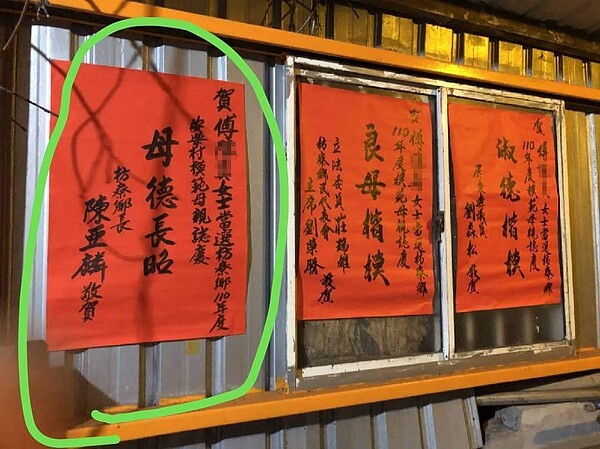 賀傅女士當選枋寮鄉110年度
安樂村模範母親誌慶
母德長昭
枋寮鄉長
陳亞麟 敬賀
傅女士當選枋寮鄉
110年度模範母親誌慶
良母楷模
立法委員 莊瑞雄
枋寮鄉民代表會
主席 劉榮勝 敬賀
賀 傅女士當選枋寮鄉
110年度模範母親誌慶
淑德楷模
議員 劉森松 敬賀